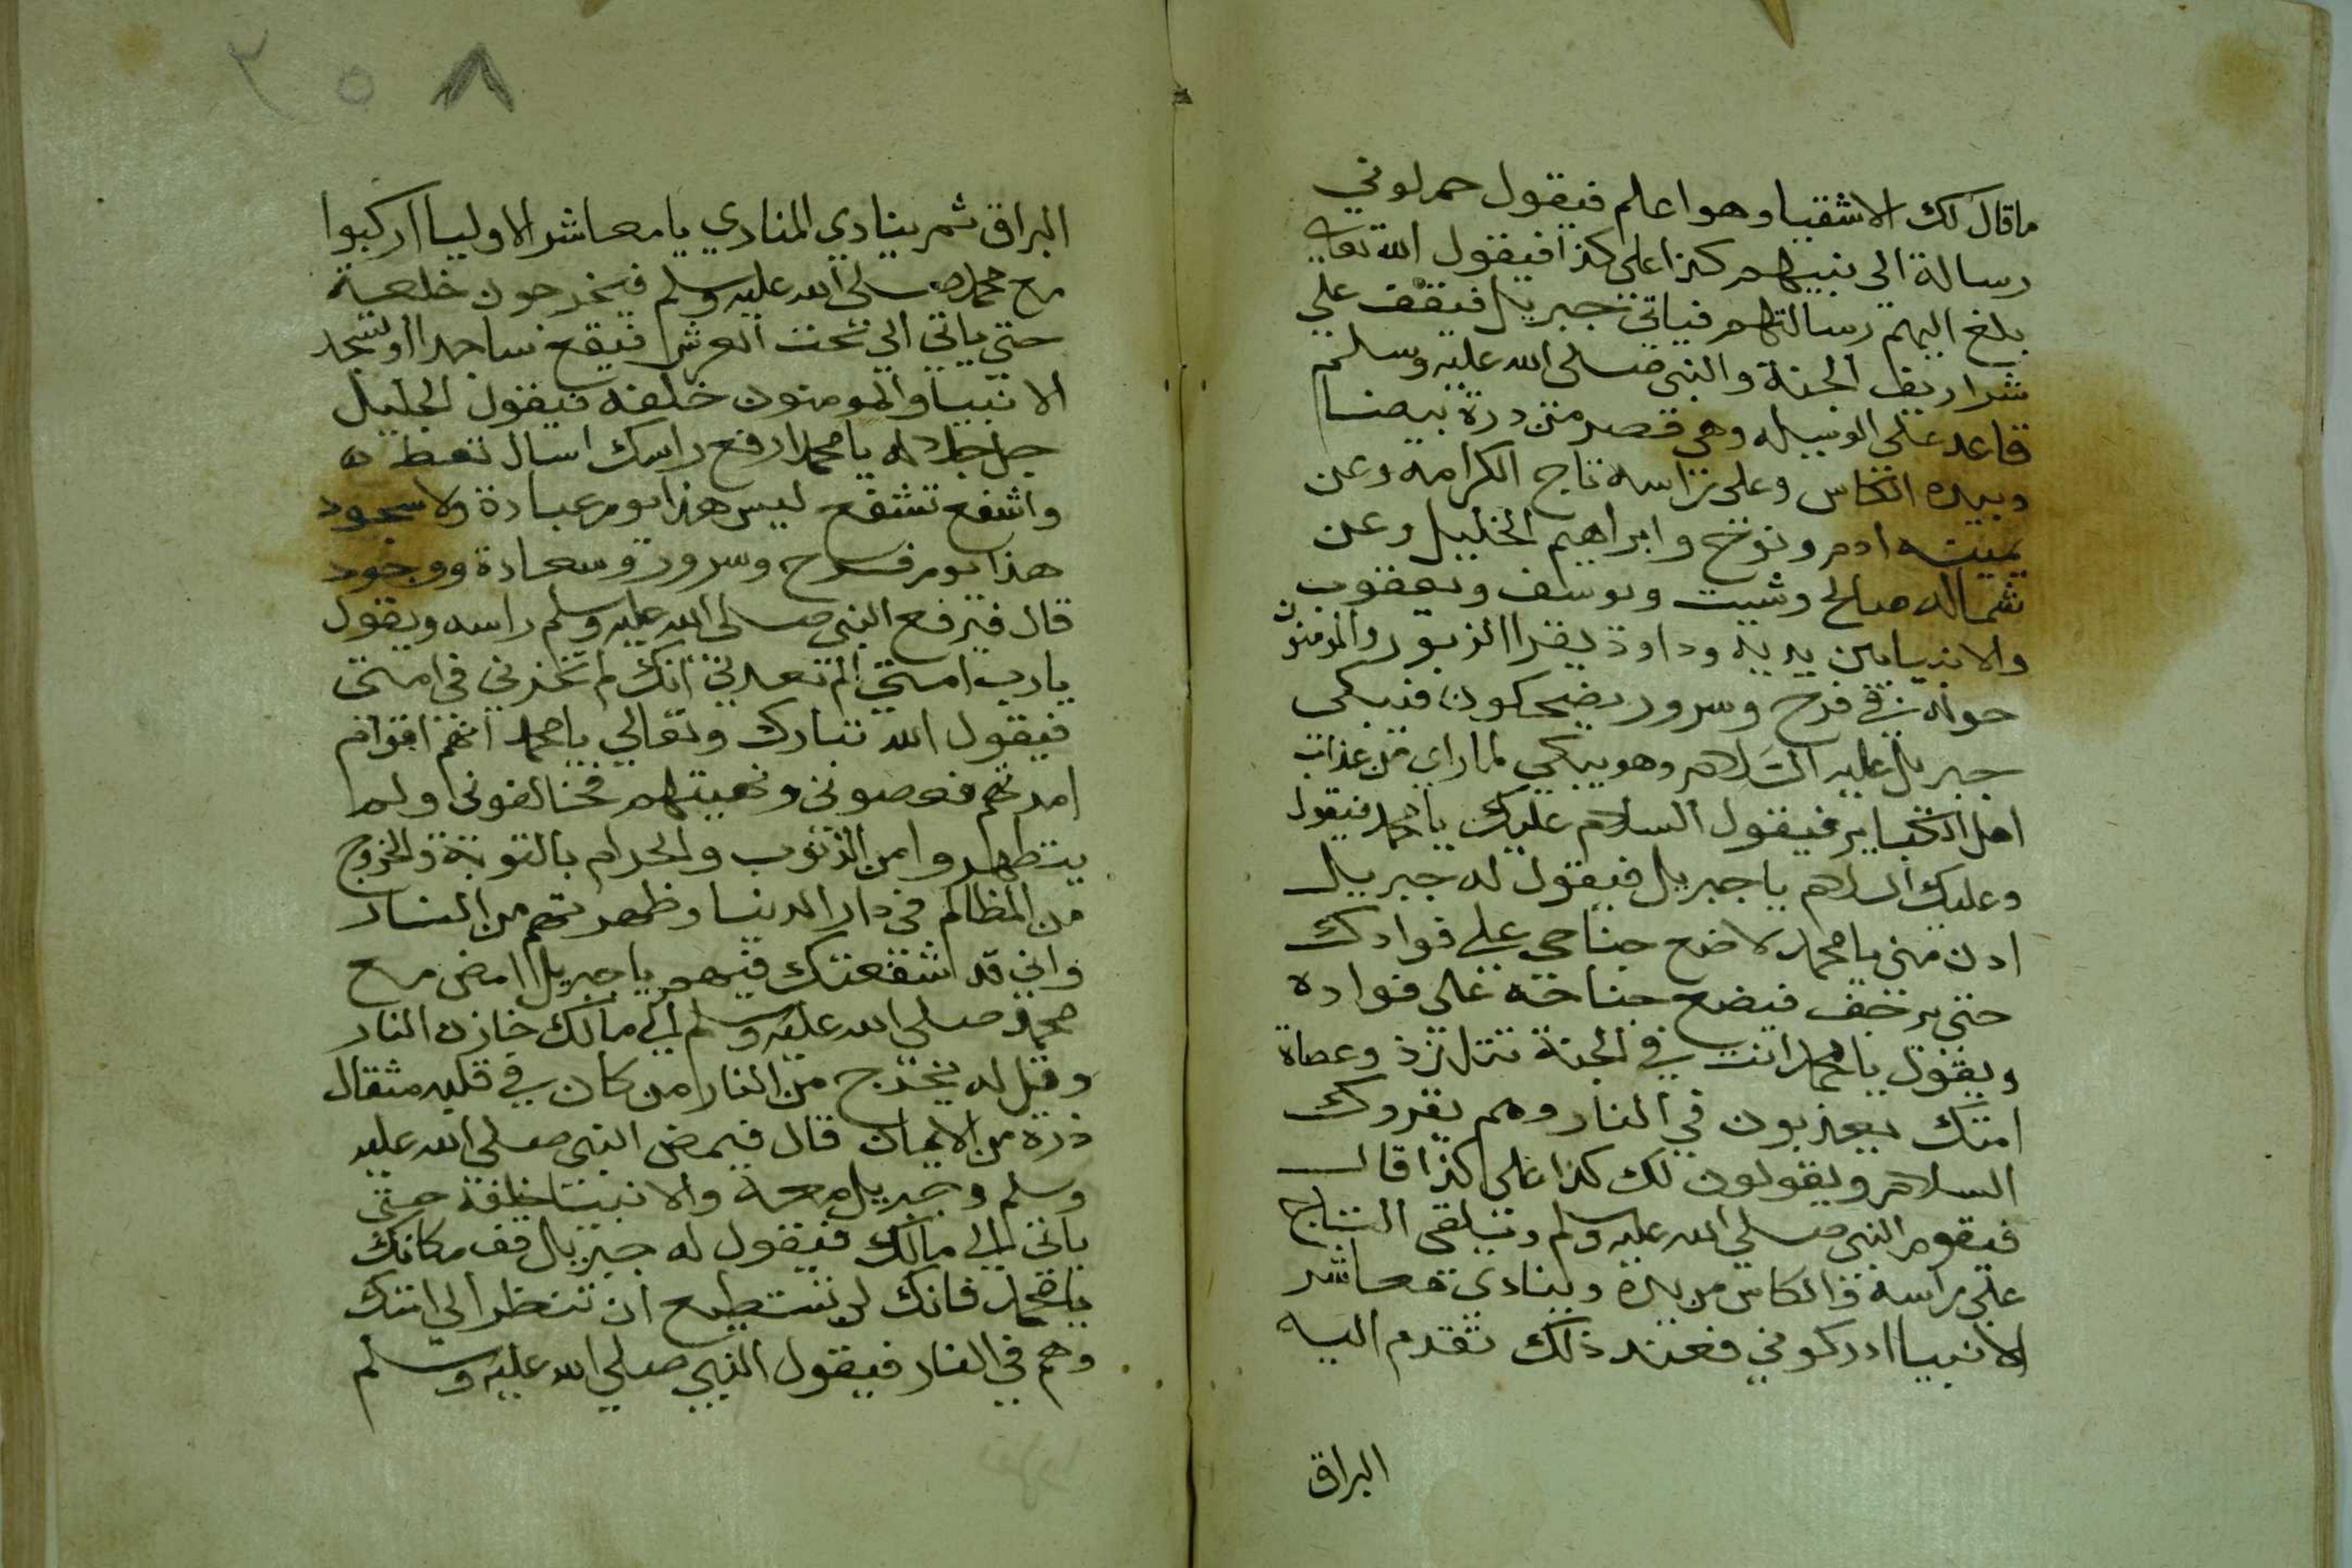 ما قال لك الاشقيا وهو اعلم فيقول حملوني
رسالة الي نبيهم كذا على كذا فيقول الله تعالى
بلغ اليهم رسالتهم فياتي جبريل فيقف علي
شراريف الجنة والنبي صلى الله عليه وسلم
قاعد على الوسيله وهي قصر من درة بيضا
وبيده الكاس وعلى راسه تاج الكرامه وعن
يمينه ادم ونوح وابراهيم الخليل وعن
شماله صالح وشيت ويوسف ويعقوب
والانبيا بين يديه وداود يقرا الزبور والمومنون
حوله في فرح وسرور يضحكون فيبكي
جبريل عليه السلام وهو يبكي لما راي من عذاب
اهل الكباير فيقول السلام عليك يا محمد فيقول
وعليك السلام يا جبريل فيقول له جبريل
ادن مني يا محمد لاضع جناحي علي فوادك
حتى يرخف فيضع جناحه على فواده
ويقول يا محمد انت في الجنة تتلذذ وعصاة
امتك يعذبون في النار وهم يقروك
السلام ويقولون لك كذا على كذا قال
فيقوم النبي صلي الله عليه وسلم ويلقي التاج
على راسه والكاس من يده وينادي معاشر
الانبيا ادركوني فعند ذلك تقدم اليه
البراق
٢٥٨
البراق ثم ينادي المنادي يا معاشر الاوليا اركبوا
مع محمد صلى الله عليه وسلم فيخرجون خلفه
حتي ياتي الي تحت العرش فيقع ساجدا وتسجد
الانبيا والمومنون خلفه فيقول الجليل
جل جلاله يا محمد ارفع راسك اسال تعطه
واشفع تشفع ليس هذا يوم عبادة ولا سجود
هذا يوم فرح وسرور وسعادة ووجود
قال فيرفع النبي صلى الله عليه وسلم راسه ويقول
يا رب امتي الم تعدني انك لم تخزني في امتي
فيقول الله تبارك وتعالي يا محمد انهم اقوام
امرتهم فعصوني ونهيتهم فخالفوني ولم
يتطهروا من الذنوب والحرام بالتوبة والخروج
من المظالم في دار الدنيا وطهرتهم من النار
واني قد اشفعتك فيهم يا جبريل امض مع
محمد صلي الله عليه وسلم الي مالك خازن النار
وقل له يخرج من النار من كان في قلبه مثقال
ذرة من الايمان قال فيمض النبي صلى الله عليه
وسلم وجبريل معه والانبيا خلفه حتى
ياتي الي مالك فيقول له جبريل قف مكانك
يا محمد فانك لم تستطيع ان تنظر الي امتك
وهم في النار فيقول النبي صلي الله عليه وسلم